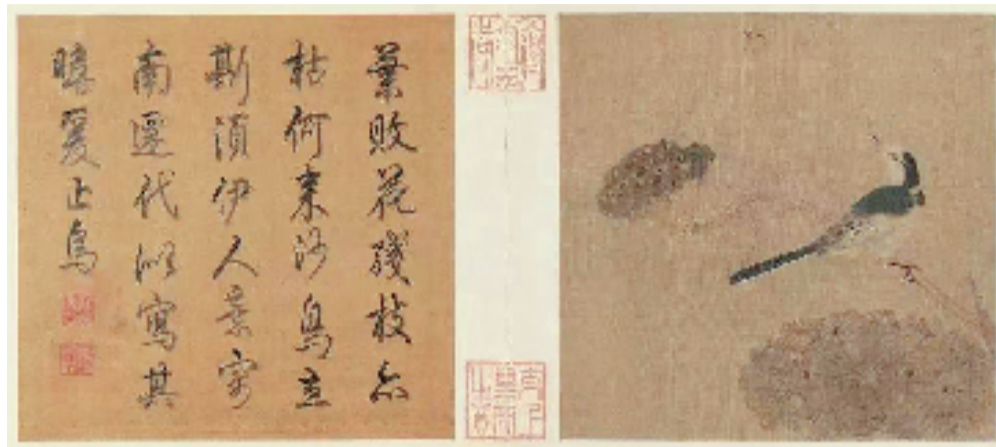 葉敗花殘枝亦
枯何来沙鳥立
斯須伊人
南遷代似寫其
瞻爰止烏